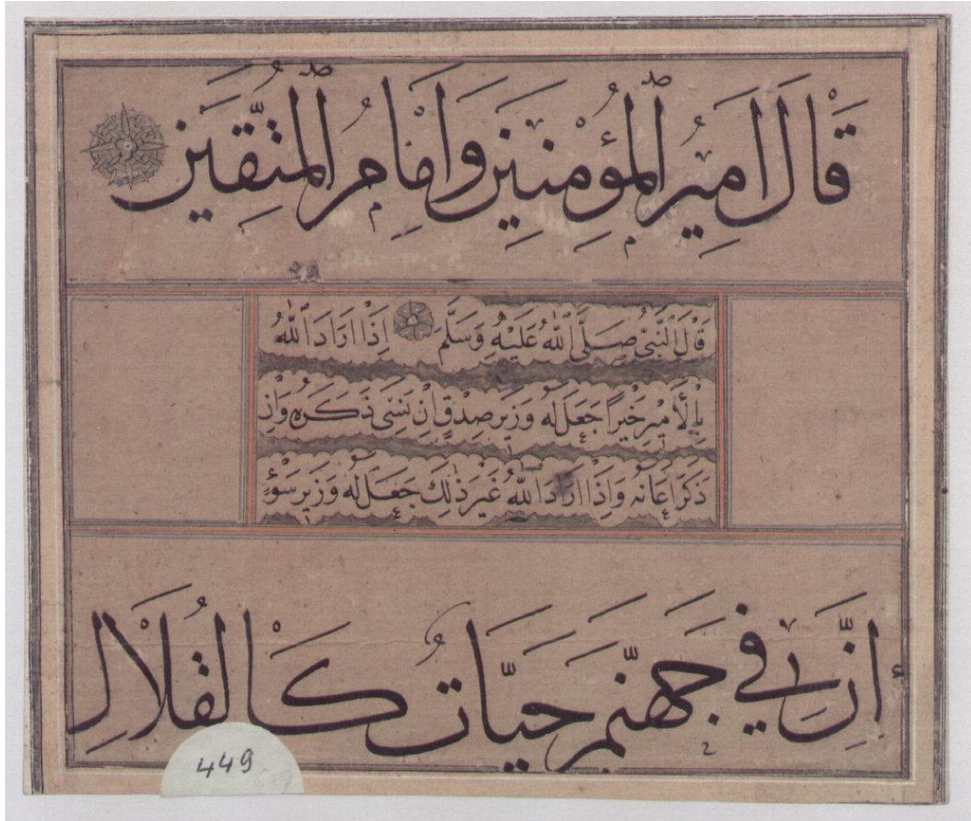 قَالَ اَمِيرُ ٱلْمُؤْمِنِينَ وَاِمَامُ الْمُتَّقِينَ
قَالَ ٱلنَّبِىُّ صَلَّى ٱللّٰهُ عَلَيْهِ وَسَلَّمَ اِذَا اَرَادَ ٱللّٰهُ
بِالْاَمِيرِ خَيْرًا جَعَلَ لَهُ وَزِيرَ صِدْقٍ اِنْ نَسِىَ ذَكَرَهُ وَاِنْ
ذَكَرَ اَعَانَهُ وَاِذَا اَرَادَ اللّٰهُ غَيْرَ ذٰلِكَ جَعَلَ لَهُ وَزِيرَ سَوْءٍ
اِنَّ فِي جَهَنَّمَ حَيَّاتٌ كَالْقُلَالِ
449